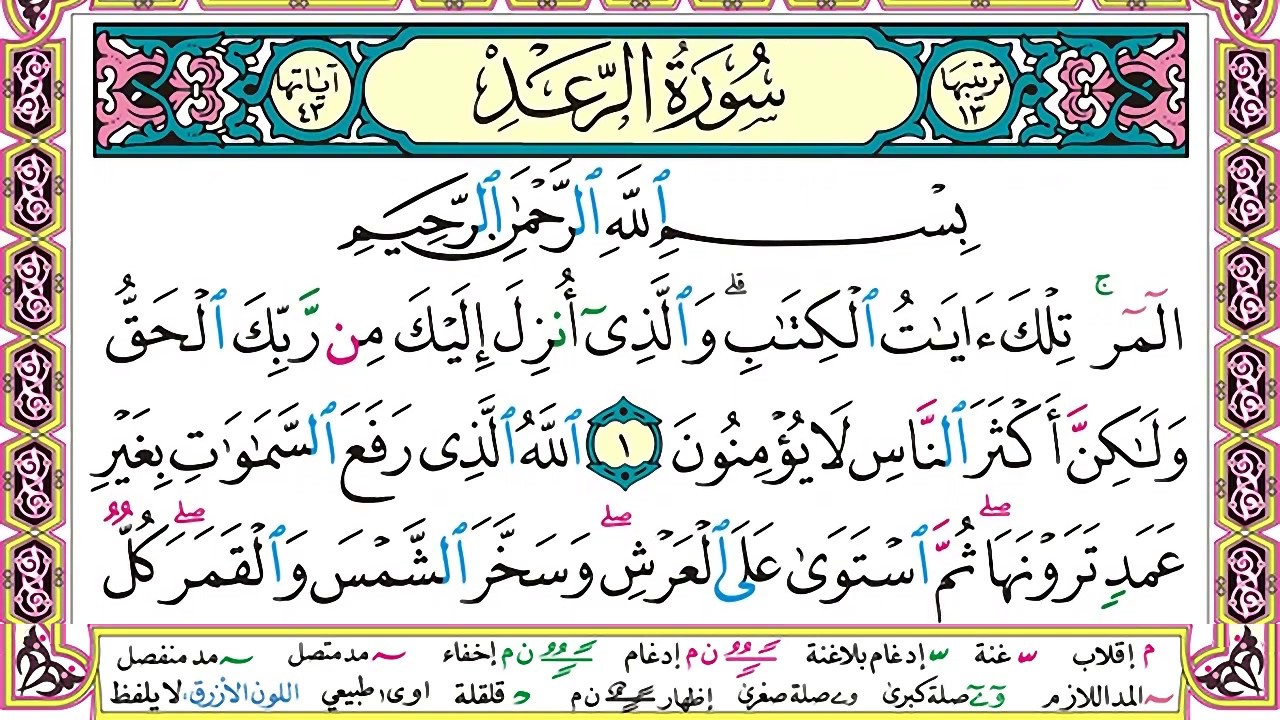 ترتيبها ١٣ سُورَةُ الرَّعْدِ آياتها ٤٣
بِسْمِ ٱللَّهِ ٱلرَّحْمَٰنِ ٱلرَّحِيمِ
الٓمٓر ۚ تِلْكَ ءَايَٰتُ ٱلْكِتَٰبِ ۗ وَٱلَّذِىٓ أُنزِلَ إِلَيْكَ مِن رَّبِّكَ ٱلْحَقُّ
وَلَٰكِنَّ أَكْثَرَ ٱلنَّاسِ لَا يُؤْمِنُونَ ١ ٱللَّهُ ٱلَّذِى رَفَعَ ٱلسَّمَٰوَٰتِ بِغَيْرِ
عَمَدٍ تَرَوْنَهَا ۖ ثُمَّ ٱسْتَوَىٰ عَلَى ٱلْعَرْشِ ۖ وَسَخَّرَ ٱلشَّمْسَ وَٱلْقَمَرَ ۖ كُلٌّ
م إقلاب س غنة س إدغام بلاغنة ن م إدغام ن م إخفاء مد متصل مد منفصل
المد اللازم و ے صلة كبرى و ے صلة صغرى إظهار ن م د قلقلة اوى ا طبيعي اللون الأزرق: لا يلفظ